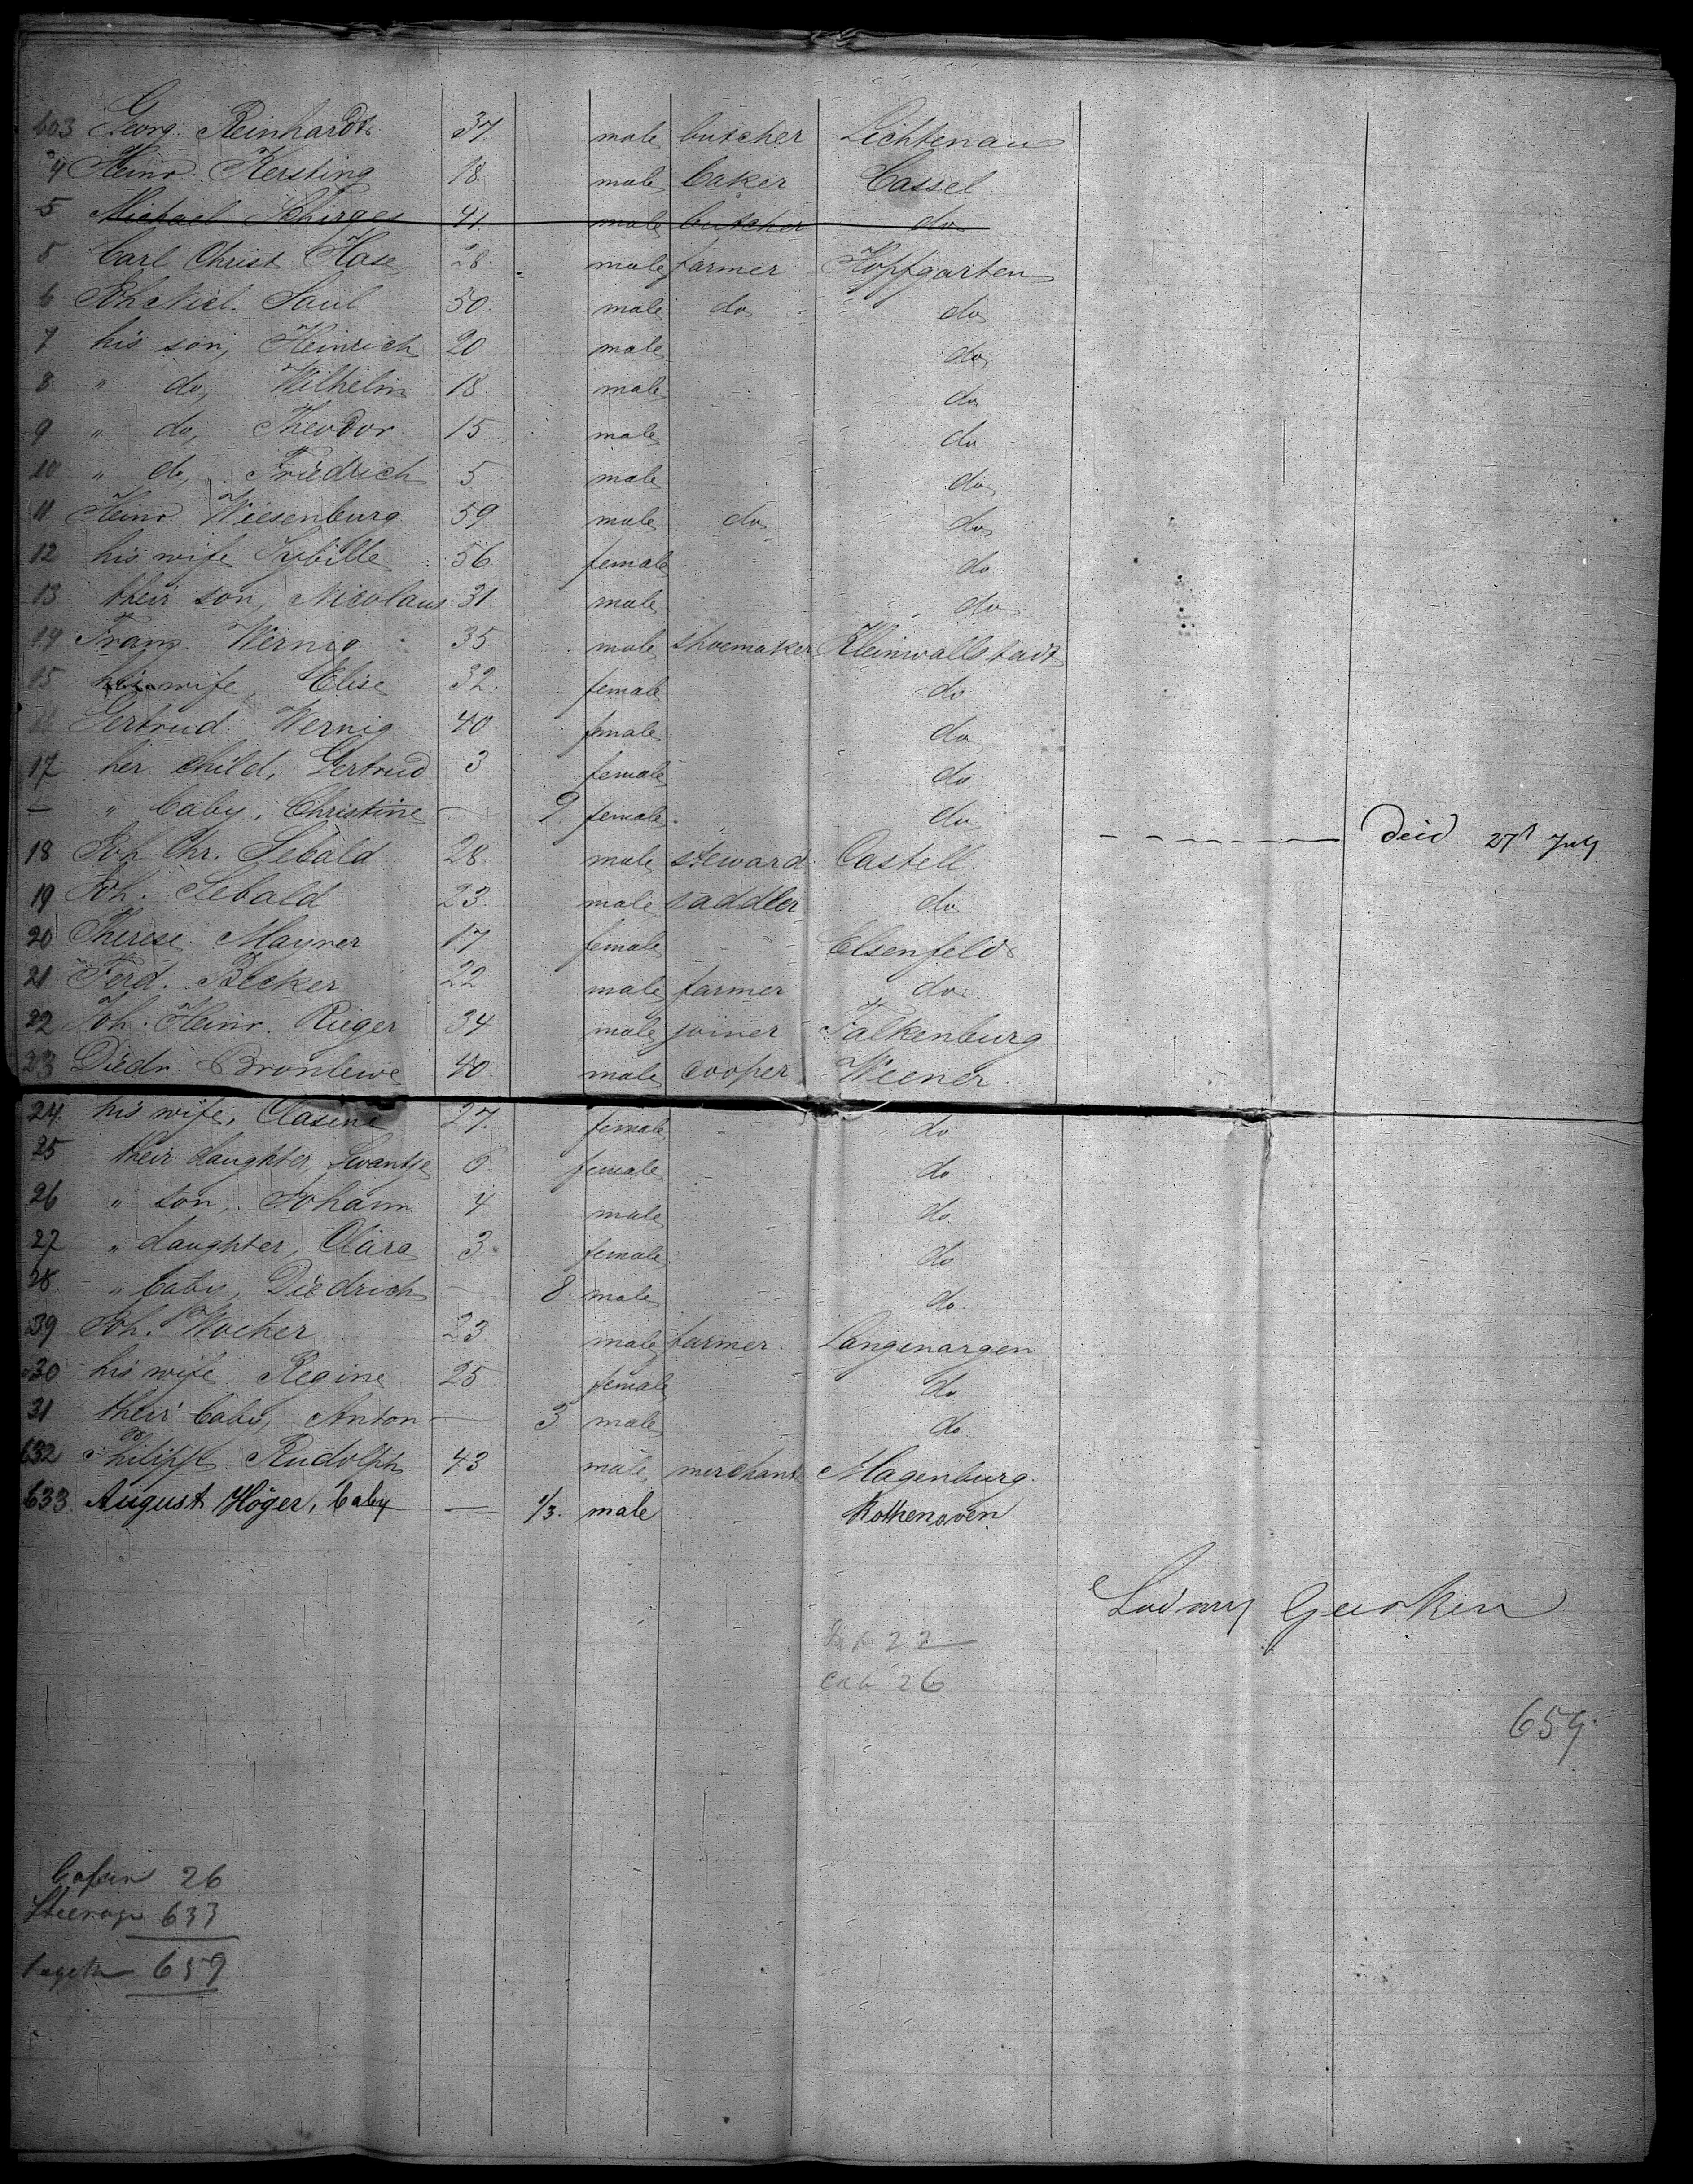 603 Georg Reinhardt 37 male butcher Lichtenau
4 Heinr. Kersting 18 male baker Cassel
5 Michael Schirges 41 male butcher do
5 Carl Christ Hase 28 male farmer Hopfgarten
6 Joh Nicl. Saul 50 male do do
7 his son, Heinrich 20 male do
8 " do, Wilhelm 18 male do
9 " do, Theodor 15 male do
10 " do, Friedrich 5 male do
11 Heinr. Wiesenburg 59 male do do
12 his wife Sybille 56 female do
13 their son, Nicolaus 31 male do
14 Franz Wernig 35 male shoemaker Kleinwallstadt
15 his wife, Elise 32 female do
16 Gertrud Wernig 40 female do
17 her child, Gertrud 3 female do
— " baby, Christine — 9 female do deid 27th July
18 Joh Chr. Sebald 28 male steward Castell
19 Joh. Sebald 23 male saddler do
20 Therese Mayner 17 female Elsenfeld
21 Ferd. Becker 22 male farmer do
22 Joh. Heinr. Rieger 34 male joiner Falkenburg
23 Diedr Bronlewe 40 male cooper Weener
24. his wife, Clasine 27 female do
25 their daughter, Swantje 6 female do
26 " son, Johann 4 male do
27 " daughter, Clara 3 female do
28 " baby, Diedrich — 8 male do
39 Joh. Wocher 23 male farmer Langenargen
30 his wife Regine 25 female do
31 their baby, Anton — 3 male do
632 Philipp Rudolph 43 male merchant Magenburg.
633. August Höger, baby — 1/3. male Rothenoven
Gerken
22
cab 26
659.
Cajuin 26
Steerage 633
659